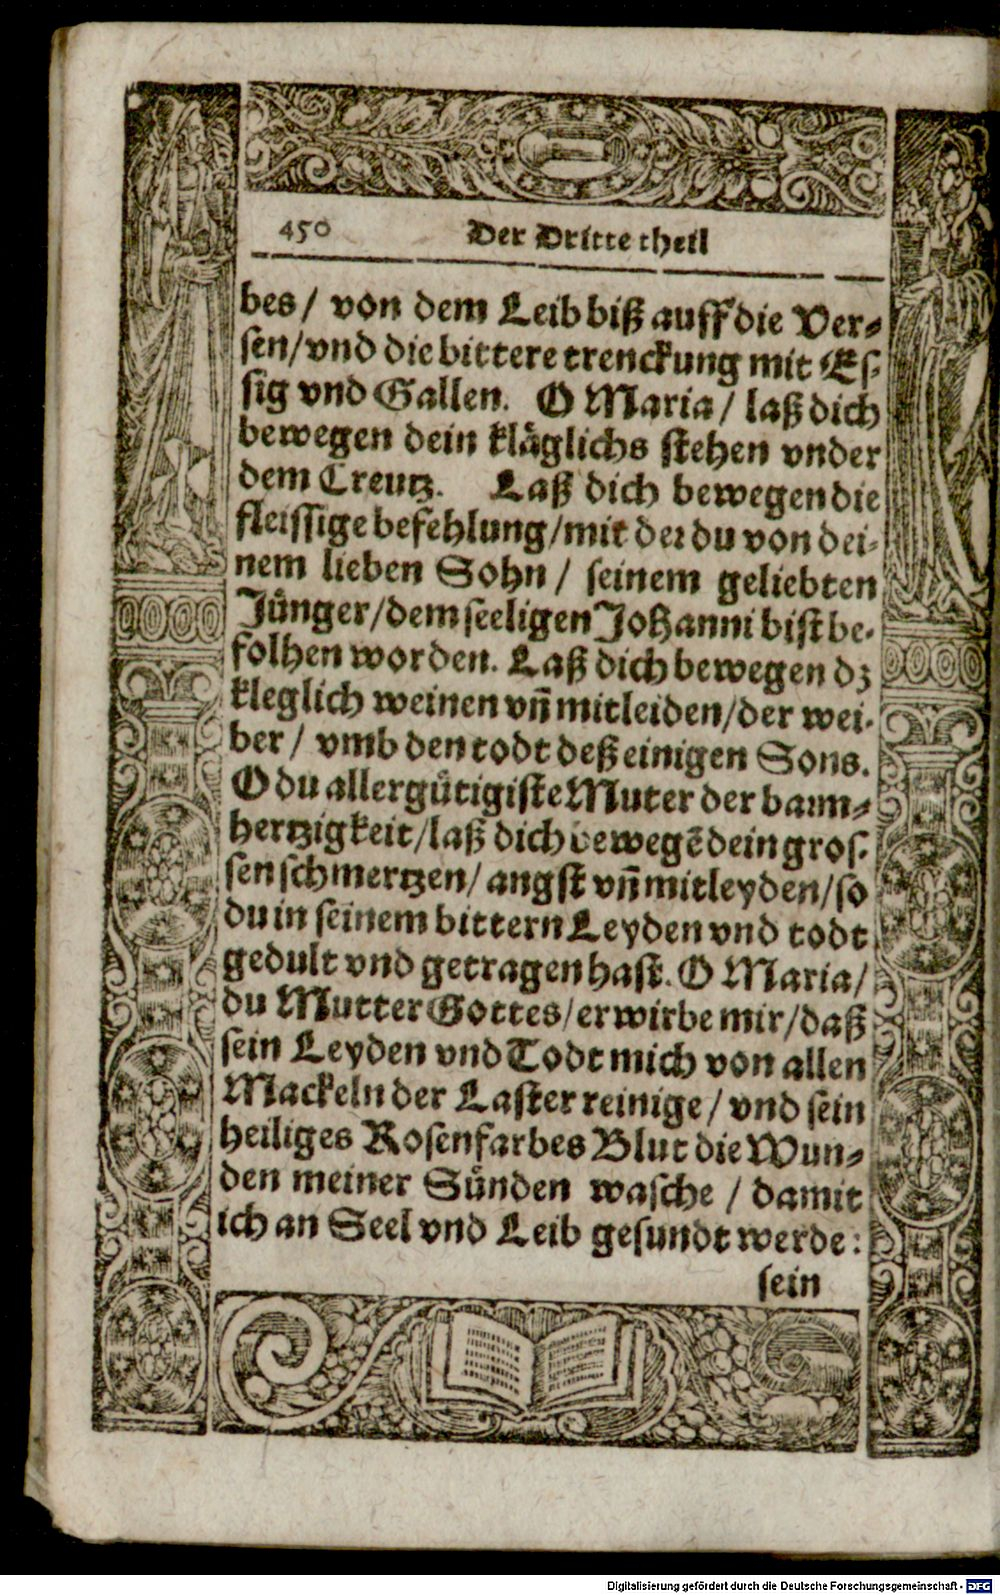 450 Der Dritte theil
bes / von dem Leib biß auff die Ver⸗
sen/vnd die bittere trenckung mit Es⸗
sig vnd Gallen. O Maria / laß dich
bewegen dein klåglichs stehen vnder
dem Creutz. Laß dich bewegen die
fleissige befehlung/mit der du von dei⸗
nem lieben Sohn / seinem geliebten
Jůnger/dem seeligen Johanni bist be⸗
folhen worden. Laß dich bewegen dz
kleglich weinen vñ mitleiden/der wei⸗
ber / vmb den todt deß einigen Sons.
O du allergůtigiste Muter der barm⸗
hertzigkeit/laß dich bewegẽ dein gros⸗
sen schmertzen/ angst vñ mitleyden/so
du in seinem bittern Leyden vnd todt
gedult vnd getragen hast. O Maria/
du Mutter Gottes/erwirbe mir/daß
sein Leyden vnd Todt mich von allen
Mackeln der Laster reinige / vnd sein
heiliges Rosenfarbes Blut die Wun⸗
den meiner Sůnden wasche / damit
ich an Seel vnd Leib gesundt werde:
sein
Digitalisierung gefördert durch die Deutsche Forschungsgemeinschaft - DFG